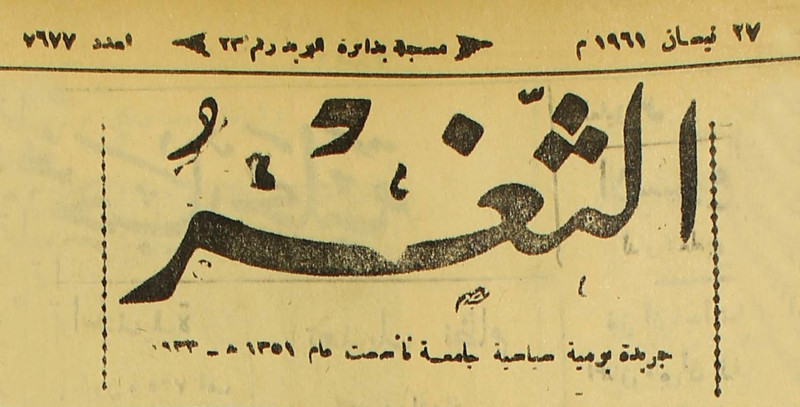 ٢٧ نيسان ١٩٦١ م مسجلة بدائرة البريد رقم ٢٣ العدد ٧٦٧٧
الثَّغْرُ
جريدة يومية سياسية جامعة تأسست عام ١٣٥١ ه ـ ١٩٣٣